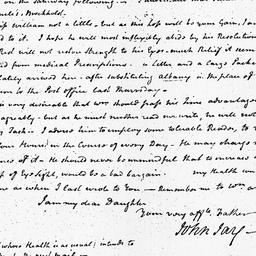 on the Saturday following.
William not a little, but as this Loss will be your Gain, I am
to it. I hope he will most inflexibly abide by his Resolution
Red will not restore strength to his Eyes. Much Relief it seems
from medical Prescriptions. a letter and a large Packet
lately arrived here, after substituting Albany in the place of
to the Post office last Thursday.
very desirable that Wm should pass his Time advantageously
agreeably, but as he must neither read nor write, he will not
Task. I advise him to employ some tolerable Reader, to
four Hours in the Course of every Day. He may charge
of it. He should never be unmindful that to encrease
of EyeSight, would be a bad bargain. my Health
as when I last wrote to you. Remember me to Wm
I am my dear Daughter
Your very affte. Father
John Jay
whose Health is as usual, intends to